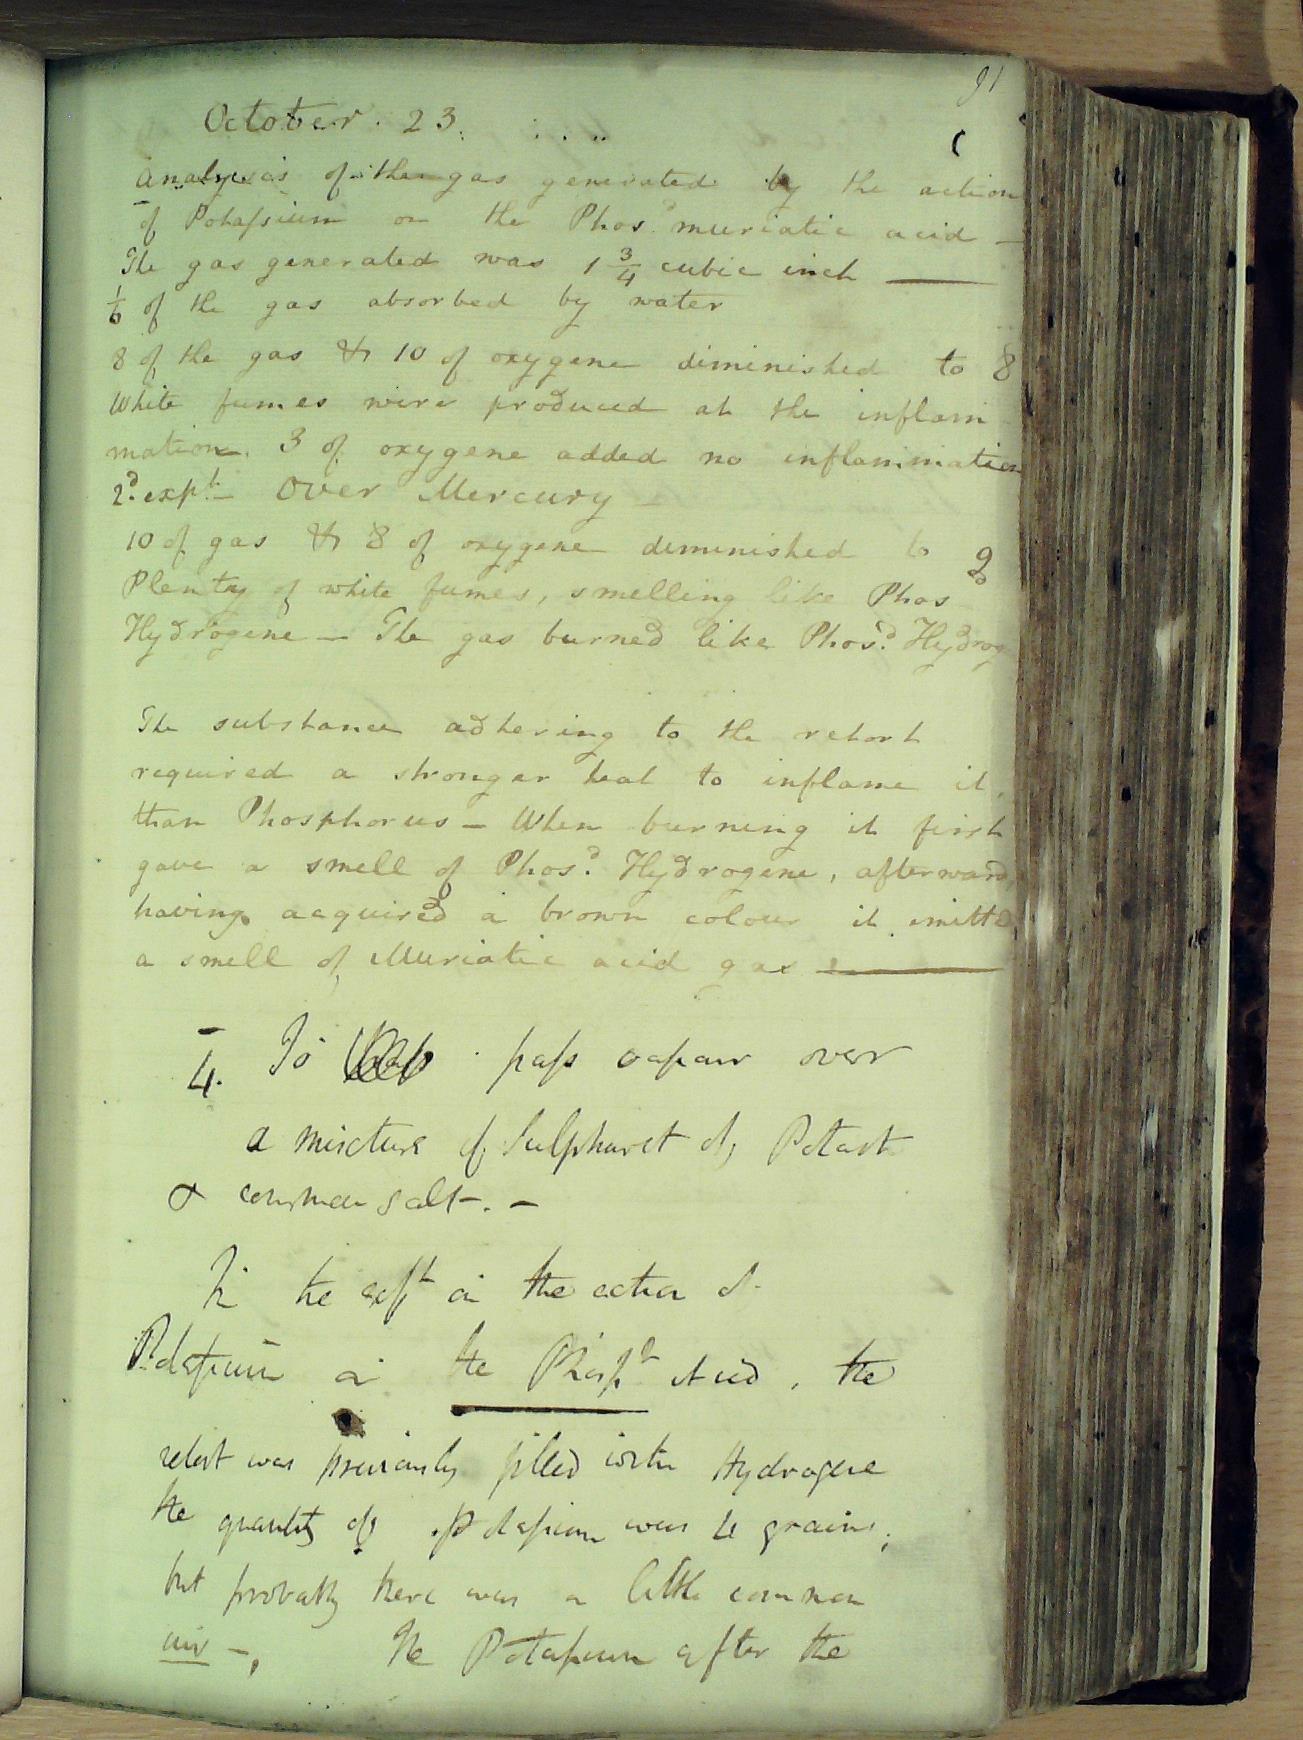 91
October. 23.
Analysis of the gas generated by the action
of Potassium on the Phosd. muriatic acid —
The gas generated was 1 3/4 cubic inch —
1/6 of the gas absorbed by water
8 of the gas & 10 of oxygene diminished to 8
White fumes were produced at the inflam
mation. 3 of oxygene added no inflammation
2d. expt. — Over Mercury —
10 of gas & 8 of oxygene diminished to 9
Plenty of white fumes, smelling like Phos
Hydrogene — The gas burned like Phosd. Hydrog
The substance adhering to the retort
required a stronger heat to inflame it,
than Phosphorus — When burning it first
gave a smell of Phosd. Hydrogene, afterwards
having acquired a brown colour it emitted
a smell of Muriatic acid gas —
4. To pass vapour over
a mixture of Sulphuret of Potash
& common salt. —
In the expt on the action of
Potassium on the Phosd Acid, the
retort was previously filled with Hydrogene
the quantity of Potassium was 4 grains;
but probably there was a little common
air —, The Potassium after the